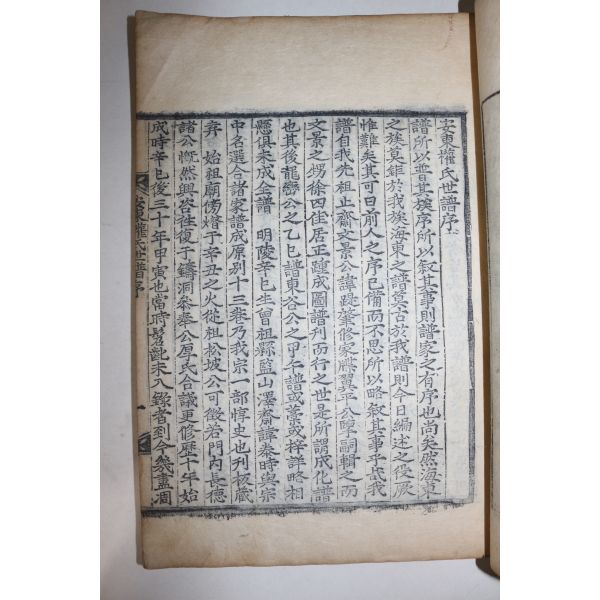 安東權氏世譜序
譜所以普其族序所以敘其事則譜家之有序也尚矣然海東
之族莫鉅於我族海東之譜莫古於我譜則今日編述之役厥
惟難矣其可曰前人之序已備而不思所以略敘其事乎我
譜自我先祖止齋文景公諱踶肇修家牒翼平公擥嗣輯之而
文景之甥徐四佳居正踵成圖譜刊而行之世是所謂成化譜
也其後龍巒公之乙巳譜東谷公之甲午譜或藁或梓詳略相
懸俱未成全譜 明陵辛巳生曾祖縣監山澤齋諱泰時與宗
中名選合諸家譜成原別十三卷乃我宗一部惇史也刊板藏
弆 始祖廟傷燬于辛丑之火從祖松坡公可徵若門內長德
諸公慨然興咨復于鑄洞參奉公厚氏合議更修歷十年始
成時辛巳後三十年甲寅也當時髫齔未入錄者到今幾盡凋
安東權氏世譜序
一